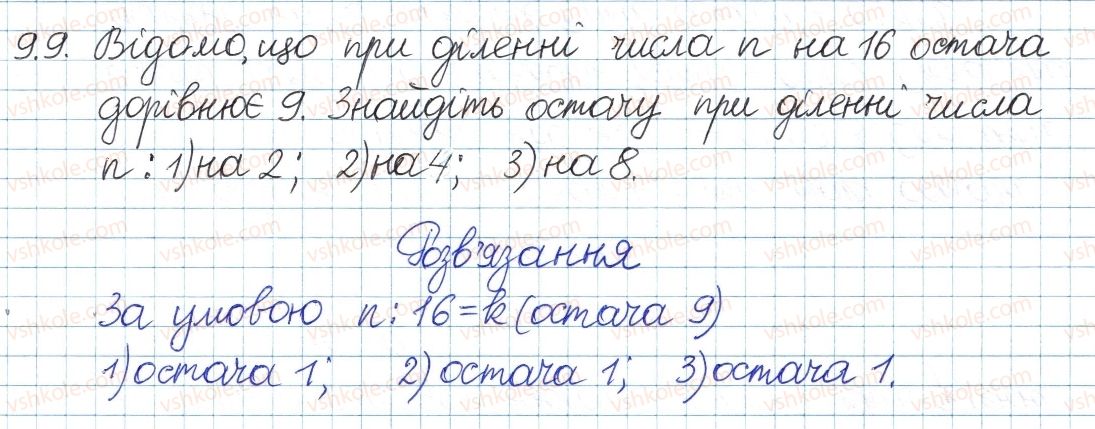 9.9. Відомо, що при діленні числа n на 16 остача
дорівнює 9. Знайдіть остачу при діленні числа
n : 1) на 2; 2) на 4; 3) на 8.
Розв'язання
За умовою n : 16 = k (остача 9)
1) остача 1; 2) остача 1; 3) остача 1.